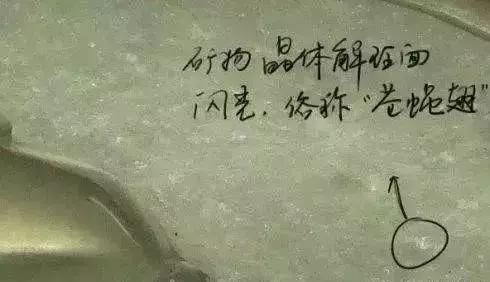 矿物晶体解理面
闪亮.俗称"苍蝇翅"